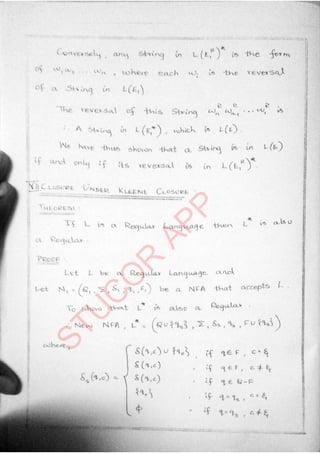 Conversely, any string in L(E₁ᴿ)* is the form
of w₁w₂ ... wₙ, where each wᵢ is the reversal
of a string in L(E₁).
The reversal of this string wₙᴿ wₙ₋₁ᴿ ... w₁ᴿ is
∴ A string in L(E₁*), which is L(E).
We have thus shown that a string is in L(E)
if and only if its reversal is in L(E₁ᴿ)*.
CLOSURE UNDER KLEENE CLOSURE :
THEOREM :
If L is a Regular Language then L* is also
a Regular.
PROOF :
Let L be a Regular Language and
Let N₁ = (Q₁, Σ, δ₁, q₁, F₁) be a NFA that accepts L.
To show that L* is also a Regular.
New NFA, L* = (Q∪{q₀}, Σ, δ₂, q₀, F∪{q₀})
where,
δ(q,c) ∪ {q₀}, if q∈F, c=ξ
δ(q,c) , if q∈F, c≠ξ
δ₂(q,c) = δ(q,c) , if q∈Q-F
{q₀} , if q=q₀, c=ξ
ϕ , if q=q₀, c≠ξ
STUCOR APP